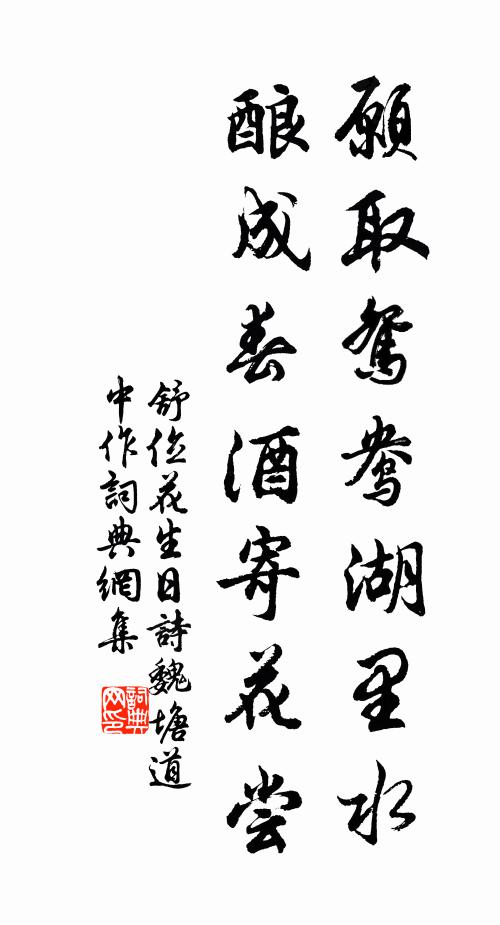 願取鴛鴦湖里水
酿成春酒寄花尝
舒位花生日詩魏塘道
中作詞典網集
詞典
网印